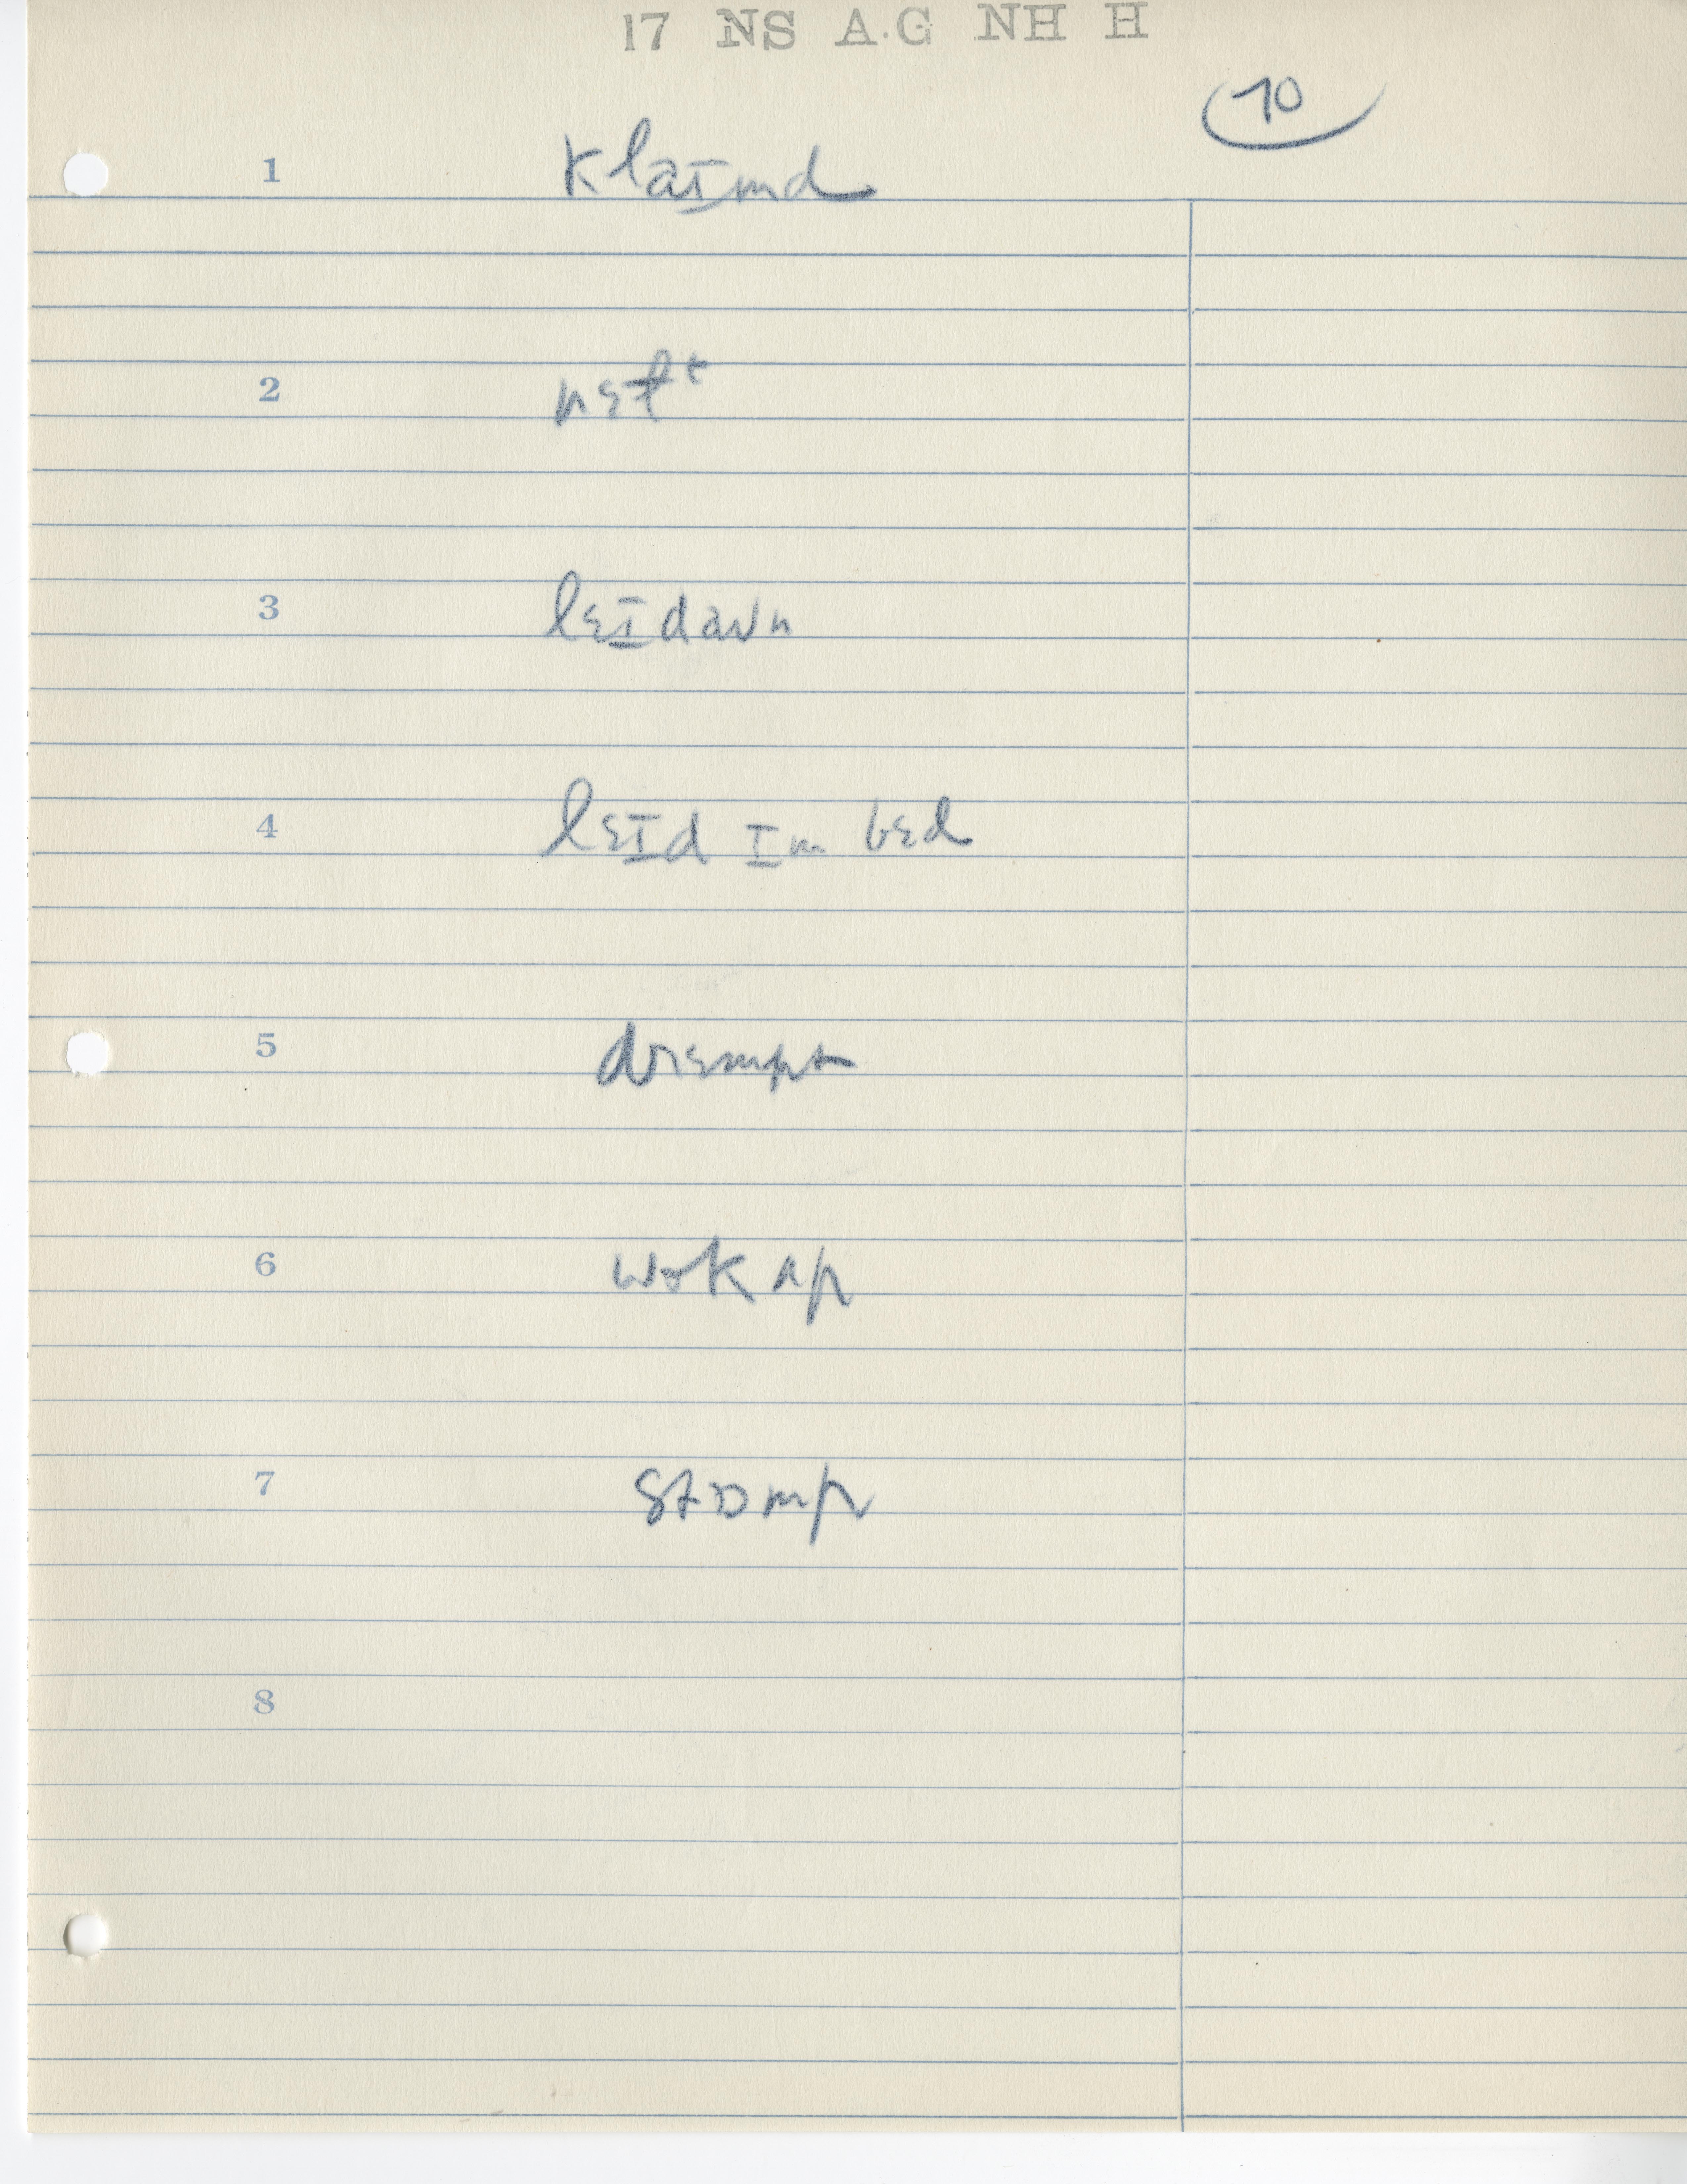 17 NS A.G NH H
70
1 klaɪmd
2
3 lɛɪdaʊn
4 lɛɪd ɪm bɛd
5 drɛmpt
6 wok ʌp
7 stɒmp
8